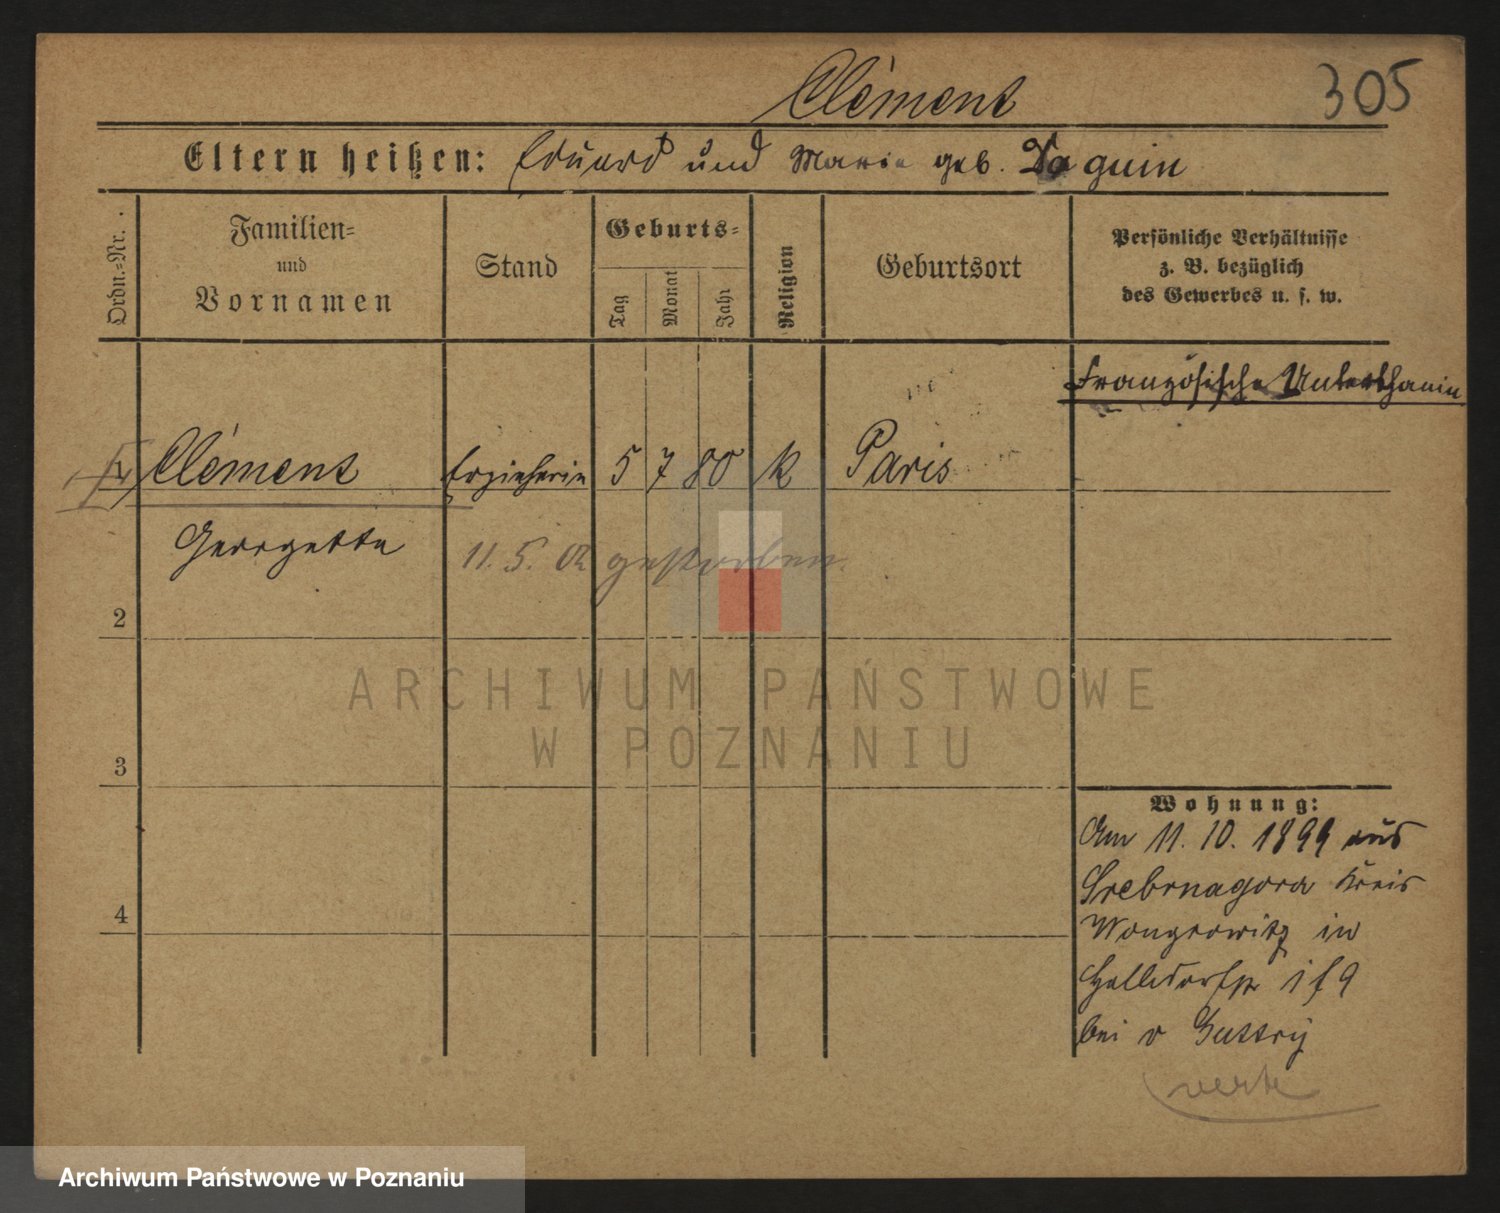 Clément
305
Eltern heißen: Eduard und Marie geb. Daguin
Ordn.-Nr.
Familien-
und
Vornamen
Stand
Geburts-
Tag
Monat
Jahr
Religion
Geburtsort
Persönliche Verhältnisse
z. B. bezüglich
des Gewerbes u. s. w.
Französische Unterthanin
Clément Erzieherin 5 7 80 k Paris
Georgette
11. 5. 02 gestorben.
2
3
4
Wohnung:
Am 11. 10. 1899 aus
Srebrnagora Kreis
Wongrowitz in
bei v
verte
ARCHIWUM PAŃSTWOWE
W POZNANIU
Archiwum Państwowe w Poznaniu